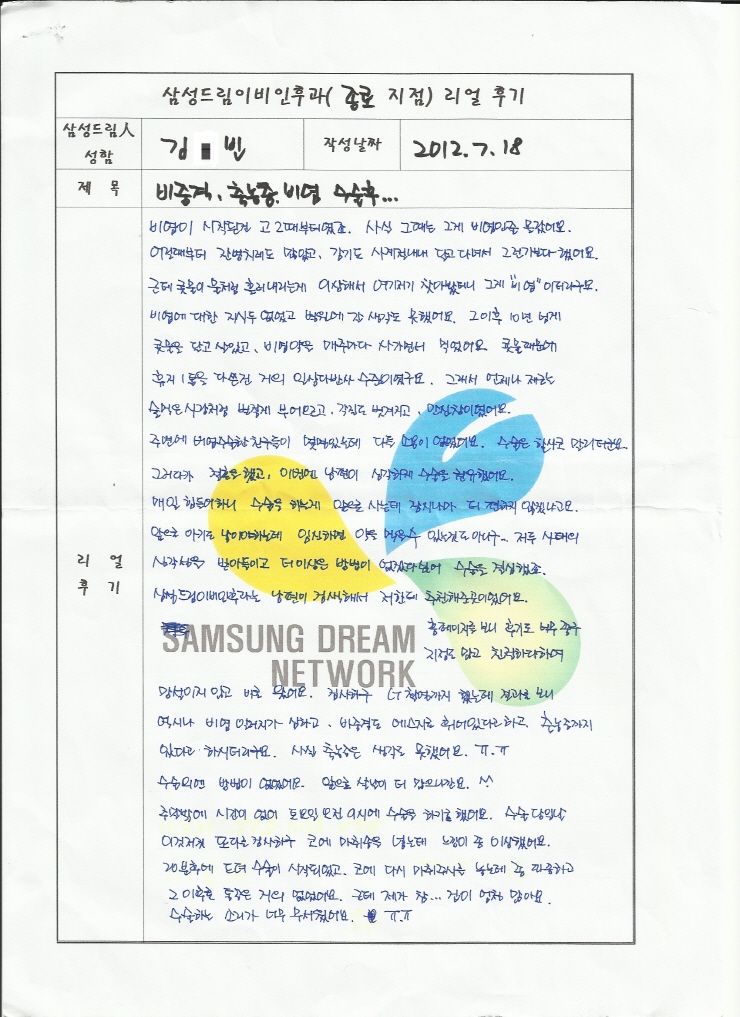 삼성드림이비인후과( 종로 지점) 리얼 후기
삼성드림人 성함
김 빈
작성날짜
2012.7.18
제 목
비중격, 축농증, 비염 수술후...
리 얼 후 기
비염이 시작된건 고2때부터였죠. 사실 그때는 그게 비염인줄 몰랐어요.
어릴때부터 잔병치레도 많았고, 감기도 사계절내내 달고 다녀서 그런가보다 했어요.
근데 콧물이 물처럼 흘러내리는게 이상해서 여기저기 찾아봤더니 그게 "비염"이더라구요.
비염에 대한 지식두 없었고 병원에 갈 생각도 못했어요. 그 이후 10년 넘게
콧물을 달고 살았고, 비염약을 매주마다 사가면서 먹었어요. 콧물때문에
휴지 1통을 다 쓴건 거의 일상다반사 수준이였구요. 그래서 언제나 제 코는
술먹은 사람처럼 벌겋게 부어오르고, 각질도 벗겨지고, 만신창이였어요.
주변에 비염수술한 친구들이 몇몇있는데 다들 소용이 없었대요. 수술은 절대로 말리더군요.
그러다가 결혼을 했고, 이번엔 남편이 심각하게 수술을 권유했어요.
매일 힘들어하니 수술을 하는게 앞으로 사는데 잠시나마 더 편하지 않겠냐고요.
앞으로 아기도 낳아야하는데 임신하면 약을 먹을수 있는것도 아니구... 저두 사태의
심각성을 받아들이고 더이상은 방법이 없겠다싶어 수술을 결심했죠.
삼성드림이비인후과는 남편이 검색해서 저한테 추천해준곳이었어요.
홈페이지를 보니 후기도 너무 좋구
지점도 많고 친절하다하여
SAMSUNG DREAM
NETWORK
망설이지 않고 바로 왔어요. 검사하구 CT촬영까지 했는데 결과를 보니
역시나 비염 알러지가 심하고, 비중격도 에스자로 휘어있다고 하고, 축농증까지
있다고 하시더라구요. 사실 축농증은 생각도 못했어요. ㅠ.ㅠ
수술외엔 방법이 없었어요. 앞으로 살날이 더 많으니깐요. ^^
주말밖에 시간이 없어 토요일 오전 9시에 수술을 하기로 했어요. 수술 당일날
이것저것 또다른 검사하구 코에 마취솜을 넣는데 느낌이 좀 이상했어요.
20분후에 드뎌 수술이 시작되었고. 코에 다시 마취주사를 놓는데 좀 따끔하고
그 이후론 통증은 거의 없었어요. 근데 제가 참... 겁이 엄청 많아요.
수술하는 소리가 너무 무서웠어요. ㅠ.ㅠ